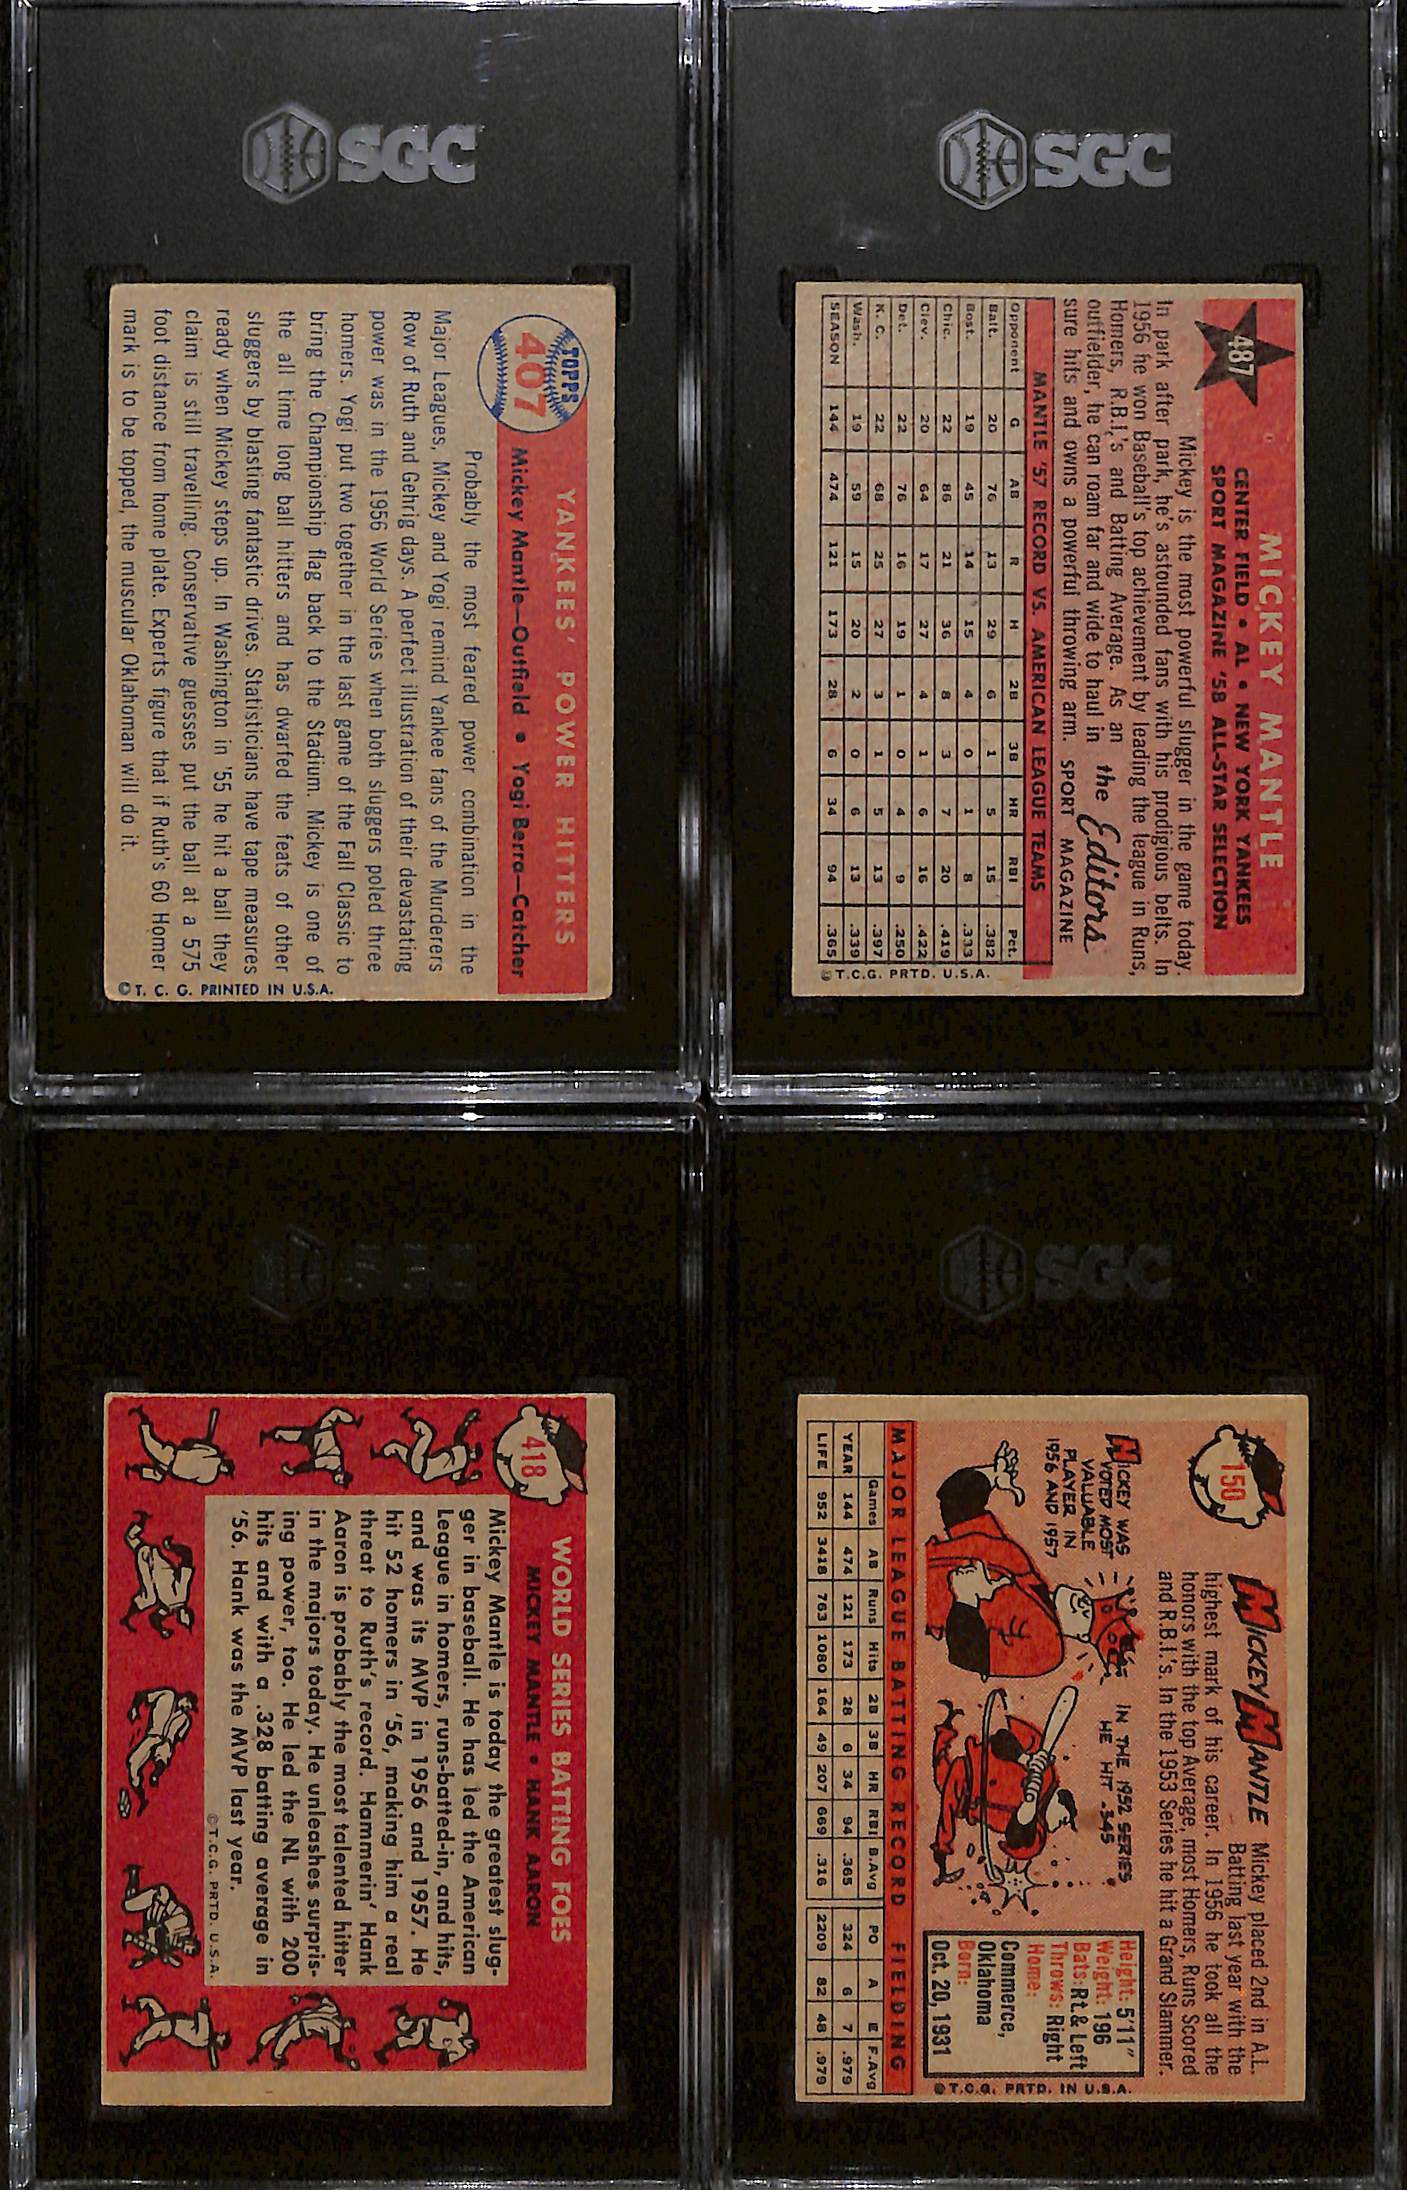 SGC
487
MICKEY MANTLE
CENTER FIELD • AL • NEW YORK YANKEES
SPORT MAGAZINE '58 ALL-STAR SELECTION
Mickey is the most powerful slugger in the game today.
In park after park, he's astounded fans with his prodigious belts. In
1956 he won Baseball's top achievement by leading the league in Runs,
Homers, R.B.I.'s and Batting Average. As an
outfielder, he can roam far and wide to haul in
sure hits and owns a powerful throwing arm.
the Editors
SPORT MAGAZINE
MANTLE '57 RECORD VS. AMERICAN LEAGUE TEAMS
Opponent G AB R H 2B 3B HR RBI Pct.
Balt. 20 76 13 29 6 1 5 15 .382
Bost. 19 45 14 15 4 0 1 8 .333
Chic. 22 86 21 36 8 3 7 20 .419
Clev. 20 64 17 27 4 1 6 16 .422
Det. 22 76 16 19 1 0 4 9 .250
K. C. 22 68 25 27 3 1 5 13 .397
Wash. 19 59 15 20 2 0 6 13 .339
SEASON 144 474 121 173 28 6 34 94 .365
© T.C.G. PRTD. U.S.A.
SGC
TOPPS
407
YANKEES' POWER HITTERS
Mickey Mantle—Outfield • Yogi Berra—Catcher
Probably the most feared power combination in the
Major Leagues, Mickey and Yogi remind Yankee fans of the Murderers
Row of Ruth and Gehrig days. A perfect illustration of their devastating
power was in the 1956 World Series when both sluggers poled three
homers. Yogi put two together in the last game of the Fall Classic to
bring the Championship flag back to the Stadium. Mickey is one of
the all time long ball hitters and has dwarfed the feats of other
sluggers by blasting fantastic drives. Statisticians have tape measures
ready when Mickey steps up. In Washington in '55 he hit a ball they
claim is still travelling. Conservative guesses put the ball at a 575
foot distance from home plate. Experts figure that if Ruth's 60 Homer
mark is to be topped, the muscular Oklahoman will do it.
© T. C. G. PRINTED IN U.S.A.
SGC
150
MICKEY MANTLE
Mickey placed 2nd in A.L.
Batting last year with the
highest mark of his career. In 1956 he took all the
honors with the top Average, most Homers, Runs Scored
and R.B.I.'s. In the 1953 Series he hit a Grand Slammer.
MICKEY WAS
VOTED MOST
VALUABLE
PLAYER IN
1956 AND 1957
IN THE 1952 SERIES
HE HIT .345
Height: 5'11"
Weight: 196
Bats: Rt. & Left
Throws: Right
Home:
Commerce,
Oklahoma
Born:
Oct. 20, 1931
© T.C.G. PRTD. IN U.S.A.
MAJOR LEAGUE BATTING RECORD FIELDING
Games AB Runs Hits 2B 3B HR RBI B.Avg PO A E F.Avg
YEAR 144 474 121 173 28 6 34 94 .365 324 6 7 .979
LIFE 952 3418 763 1080 164 49 207 669 .316 2209 82 48 .979
SGC
418
WORLD SERIES BATTING FOES
MICKEY MANTLE • HANK AARON
Mickey Mantle is today the greatest slug-
ger in baseball. He has led the American
League in homers, runs-batted-in, and hits,
and was its MVP in 1956 and 1957. He
hit 52 homers in '56, making him a real
threat to Ruth's record. Hammerin' Hank
Aaron is probably the most talented hitter
in the majors today. He unleashes surpris-
ing power, too. He led the NL with 200
hits and with a .328 batting average in
'56. Hank was the MVP last year.
© T.C.G. PRTD. U.S.A.